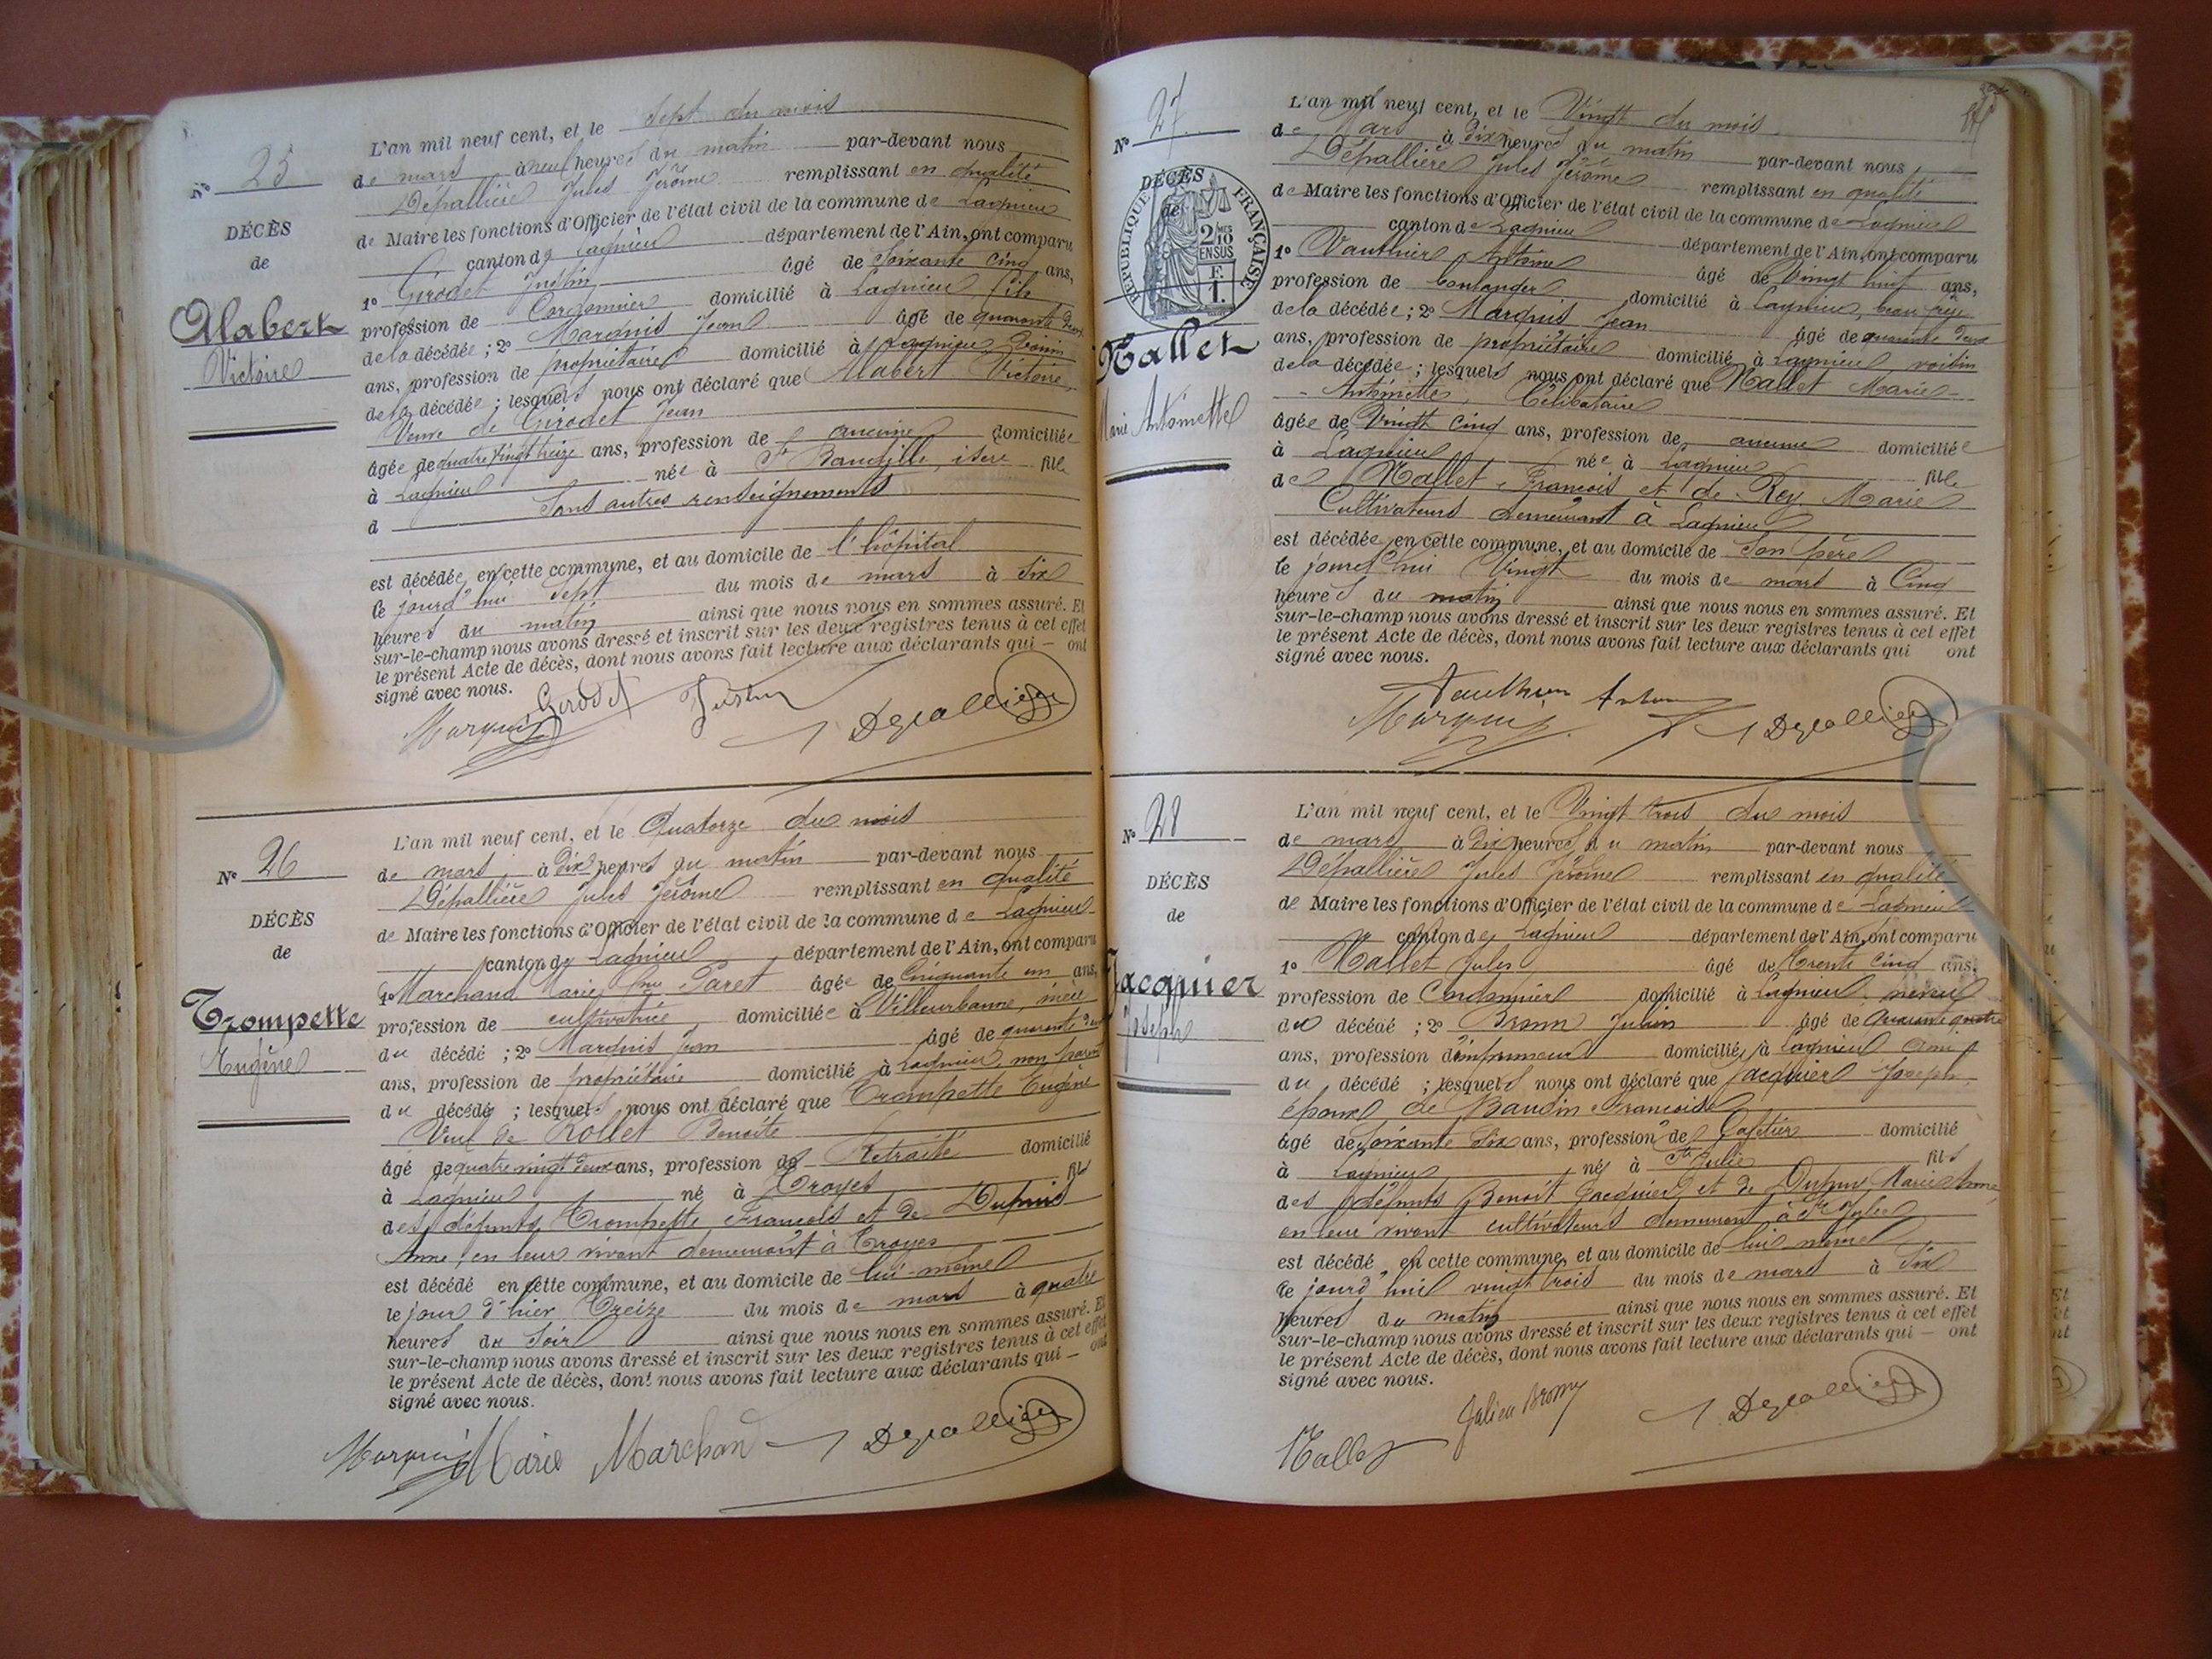 Nº 25
DÉCÈS
de
Alabert
Victoire
L'an mil neuf cent, et le Sept du mois
de mars à neuf heures du matin par-devant nous
Dépallière Jules Jérôme remplissant en qualité
de Maire les fonctions d'Officier de l'état civil de la commune de Lagnieu
canton de Lagnieu département de l'Ain, ont comparu
1º Girodet Justin âgé de Soixante Cinq ans,
profession de Cordonnier domicilié à Lagnieu, fils
de la décédée ; 2º Marquis Jean âgé de quarante deux
ans, profession de propriétaire domicilié à Lagnieu, voisin
de la décédée ; lesquels nous ont déclaré que Alabert Victoire,
Veuve de Girodet Jean
âgée de quatre vingt treize ans, profession de aucune domiciliée
à Lagnieu née à St Baudille, isère fille
d Sans autres renseignements
est décédée, en cette commune, et au domicile de l'hôpital
le jourd'hui Sept du mois de mars à Six
heures du matin ainsi que nous nous en sommes assuré. Et
sur-le-champ nous avons dressé et inscrit sur les deux registres tenus à cet effet
le présent Acte de décès, dont nous avons fait lecture aux déclarants qui — ont
signé avec nous.
Girodet Justin
Marquis Depallière
Nº 26
DÉCÈS
de
Trompette
Eugène
L'an mil neuf cent, et le Quatorze du mois
de mars à Dix heures du matin par-devant nous
Dépallière Jules Jérôme remplissant en qualité
de Maire les fonctions d'Officier de l'état civil de la commune de Lagnieu
canton de Lagnieu département de l'Ain, ont comparu
1º Marchand Marie Paret âgée de Cinquante un ans,
profession de cultivatrice domiciliée à Villeurbanne, nièce
du décédé ; 2º Marquis Jean âgé de quarante deux
ans, profession de propriétaire domicilié à Lagnieu, non parent
du décédé ; lesquels nous ont déclaré que Trompette Eugène
Veuf de Rollet Benoite
âgé de quatre vingt deux ans, profession de Retraité domicilié
à Lagnieu né à Troyes fils
des défunts Trompette François et de Dupuis
Anne, en leur vivant demeurant à Troyes
est décédé en cette commune, et au domicile de lui-même
le jour d'hier Treize du mois de mars à quatre
heures du Soir ainsi que nous nous en sommes assuré. Et
sur-le-champ nous avons dressé et inscrit sur les deux registres tenus à cet effet
le présent Acte de décès, dont nous avons fait lecture aux déclarants qui — ont
signé avec nous.
Marquis Marie Marchand Depallière
Nº 27
DÉCÈS
de
RÉPUBLIQUE FRANÇAISE
2/10 EN SUS
F. 1.
Nallet
Marie Antoinette
L'an mil neuf cent, et le Vingt du mois
de Mars à dix heures du matin par-devant nous
Dépallière Jules Jérôme remplissant en qualité
de Maire les fonctions d'Officier de l'état civil de la commune de Lagnieu
canton de Lagnieu département de l'Ain, ont comparu
1º Vauthier Antoine âgé de Vingt huit ans,
profession de boulanger domicilié à Lagnieu, beau frère
de la décédée ; 2º Marquis Jean âgé de quarante deux
ans, profession de propriétaire domicilié à Lagnieu, voisin
de la décédée ; lesquels nous ont déclaré que Nallet Marie-
Antoinette, Célibataire
âgée de Vingt Cinq ans, profession de aucune domiciliée
à Lagnieu née à Lagnieu fille
de Nallet François et de Rey Marie
Cultivateurs demeurant à Lagnieu
est décédée en cette commune, et au domicile de Son père
le jourd'hui Vingt du mois de mars à Cinq
heures du matin ainsi que nous nous en sommes assuré. Et
sur-le-champ nous avons dressé et inscrit sur les deux registres tenus à cet effet
le présent Acte de décès, dont nous avons fait lecture aux déclarants qui ont
signé avec nous.
Marquis Depallière
Nº 28
DÉCÈS
de
Jacquier
Joseph
L'an mil neuf cent, et le Vingt trois du mois
de mars à Dix heures du matin par-devant nous
Dépallière Jules Jérôme remplissant en qualité
de Maire les fonctions d'Officier de l'état civil de la commune de Lagnieu
canton de Lagnieu département de l'Ain, ont comparu
1º Nallet Jules âgé de Trente Cinq ans,
profession de Cordonnier domicilié à Lagnieu, neveu
du décédé ; 2º Julien âgé de Quarante quatre
ans, profession d'imprimeur domicilié à Lagnieu ami
du décédé ; lesquels nous ont déclaré que Jacquier Joseph,
époux de Baudin Françoise
âgé de Soixante Dix ans, profession de Cafetier domicilié
à Lagnieu né à Ste Julie fils
des défunts Benoît Jacquier et de Dupuy Marie Anne,
en leur vivant cultivateurs demeurant à Ste Julie
est décédé en cette commune, et au domicile de lui-même
le jourd'hui vingt trois du mois de mars à Six
heures du matin ainsi que nous nous en sommes assuré. Et
sur-le-champ nous avons dressé et inscrit sur les deux registres tenus à cet effet
le présent Acte de décès, dont nous avons fait lecture aux déclarants qui — ont
signé avec nous.
Nallet Julien Depallière